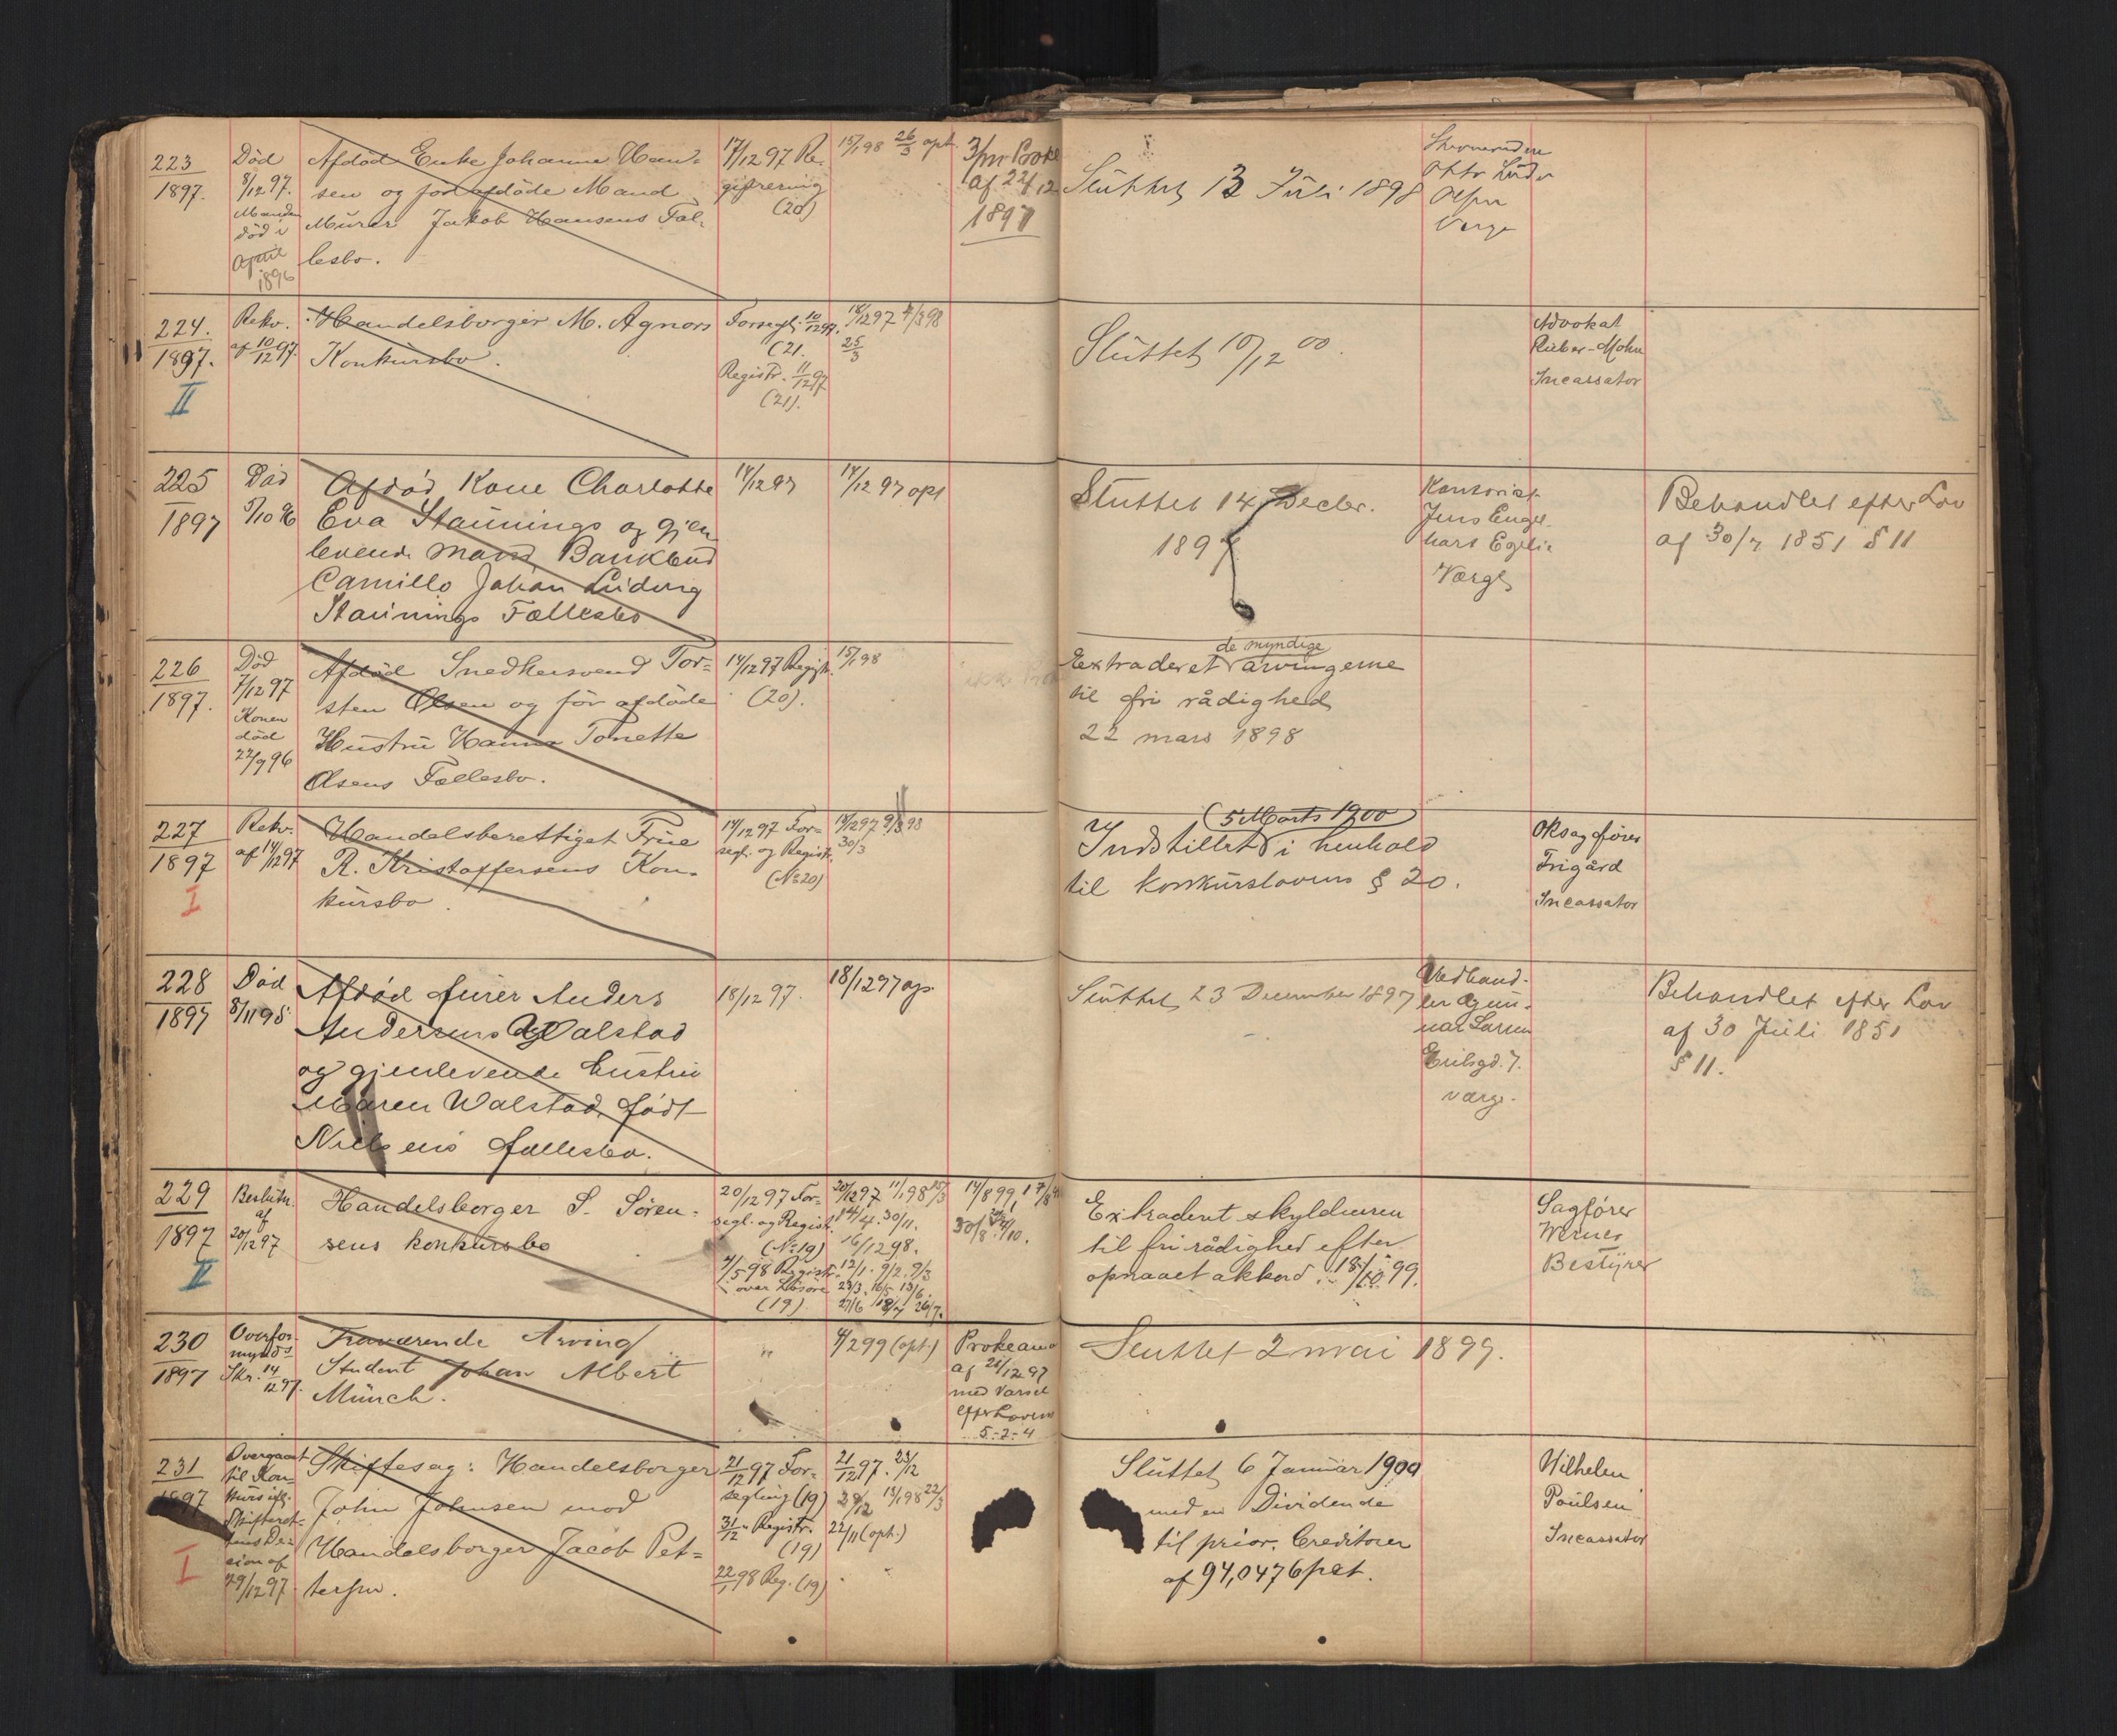 223
1897.
Død
8/12 97.
Manden
død i
April
1896
Afdød Enke Johanne Han-
sen og forh afdøde Mand
Murer Jakob Hansens Fæl-
lesbo.
17/12 97 Re-
gistrering
(20)
15/1 98 26/3 opt.
3/m Prokl
af 22/12
1897
Sluttet 13 Juli 1898
Otto
Olsen
Verge
224.
1897.
II
Rekv.
af 10/12 97.
Handelsborger M. Agnors
Konkursbo.
Forsegl. 10/12 97.
(21.
Registr. 11/12 97
(21).
14/12 97 4/3 98
25/3
Sluttet 10/12 00.
Advokat
Rieber-Mohn
Incassator
225
1897
Død
5/10 96
Afdød Kone Charlotte
Eva Staunings og gjen
levende Mand Bankbud
Camillo Johan Ludvig
Staunings Fællesbo
14/12 97
14/12 97 opt
Sluttet 14 Decbr.
1897
Kontorist
Jens Engel-
hart
Værge
Behandlet efter Lov
af 30/7 1851 § 11
226
1897.
Død
7/12 97
Konen
død
22/9 96
Afdød Snedkersvend Tor-
sten Olsen og før afdøde
Hustru Hanna Tonette
Olsens Fællesbo.
14/12 97 Registr.
(20).
15/1 98
de myndige
Extraderet arvingerne
til fri rådighed
22 mars 1898
227
1897
I
Rekv.
af 14/12 97
Handelsberettiget Frue
R. Kristoffersens Kon-
kursbo.
14/12 97 For-
segl. og Registr.
(No 20)
14/12 97 9/3 98
30/3
(5 Marts 1900
Indstillet i henhold
til Konkurslovens § 20.
Oksagfører
Frigård
Incassator
228
1897
Død
8/11 95
Afdød furer Anders
Andersens Walstad
og gjenlevende hustru
Maren Walstad født
Nielsens fællesbo.
18/12 97.
18/12 97 op.
Sluttet 23 December 1897
Vedhand-
ler Gun-
nar Larsen
Eriksgd. 7.
værge.
Behandlet efter Lov
af 30 Juli 1851
§ 11.
229
1897
II
Beslutn.
af
20/12 97
Handelsborger S. Søren-
sens konkursbo
20/12 97 For-
segl. og Registr.
(No 19)
4/5 98 Registr.
over Løsøre
(19).
20/12 97 11/1 98 15/3
14/4. 30/11.
16/12 98.
12/1. 9/2. 9/3
23/3. 16/5 13/6.
27/6 18/7 26/7.
14/8 99, 17/8
30/8 4/10.
Extraderet skyldneren
til fri rådighed efter
opnaaet akkord 18/10 99.
Sagfører
Werner
Bestyrer
230
1897
Overfor-
mynds
Skr. 14/12 97.
Fraværende Arving
Student Johan Albert
Münch.
"
4/2 99 (opt.)
Proklama
af 21/12 97
med Varsel
efter Lovens
5-2-4
Sluttet 2 mai 1899.
231
1897
I
Overgaaet
til Kon-
kurs iflg.
Skifteret-
tens De-
sion af
29/12 97
Skiftesag: Handelsborger
John Johnsen mod
Handelsborger Jacob Pet-
tersen.
21/12 97 For-
segling (19)
31/12 " Registr.
(19)
22/1 98 Reg. (19)
21/12 97. 23/12
29/12 13/1 98 22/3
22/11 (opt.)
Sluttet 6 Januar 1900
med en Dividende
til prior. Creditorer
af 94,0476 pct.
Wilhelm
Poulsen
Incassator